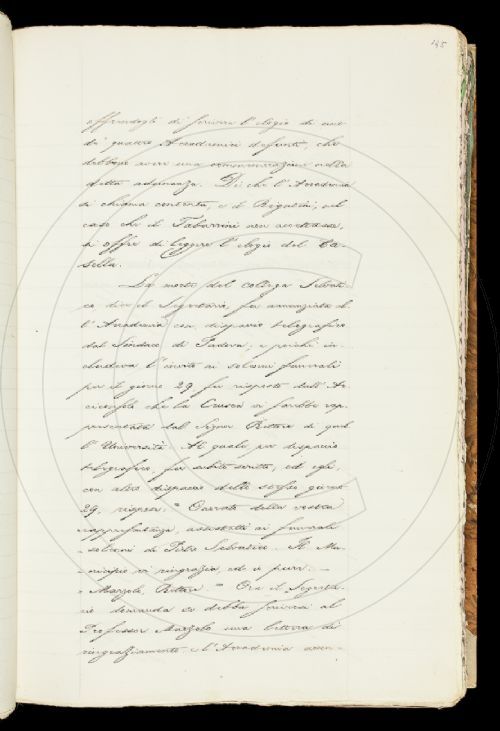 195
offrendogli di scrivere l'elogio di uno
dei quattro Accademici defunti, che
debbono avere una commemorazione nella
detta adunanza. Di che l'Accademia
si chiama contenta, e il Rigutini, nel
caso che il Tabarrini non accettasse,
si offre di leggere l'elogio del Ca-
sella.
La morte del collega Selvati-
co dice il Segretario, fu annunziata al-
l'Accademia con dispaccio telegrafico
dal Sindaco di Padova, e poichè in-
chiudeva l'invito ai solenni funerali
per il giorno 29 fu risposto dall'Ar-
ciconsolo che la Crusca vi sarebbe rap-
presentata dal Signor Rettore di quel-
l'Università. Al quale per dispaccio
telegrafico, fu subito scritto, ed egli,
con altro dispaccio dello stesso giorno
29, rispose. " Onorato della vostra
rappresentanza, assistetti ai funerali
solenni di Pietro Selvatico. Il Mu-
nicipio vi ringrazia, ed io pure. –
" Marzolo, Rettore " Ora il Segreta-
rio domanda se debba scrivere al
Professor Marzolo una lettera di
ringraziamento. e l'Accademia accon-